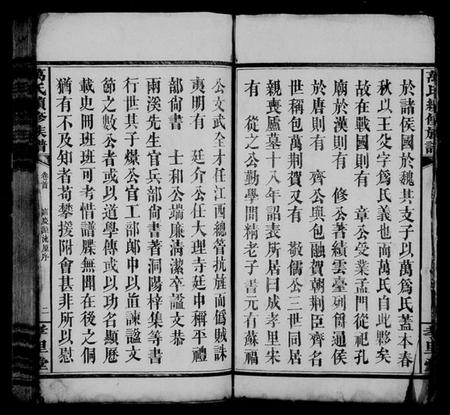 萬氏續修族譜
於諸侯國於魏其支子以萬爲氏蓋本春
秋以王父字爲氏義也而萬氏自此夥矣
故在戰國則有 章公受業孟門從祀孔
廟於漢則有 修公著績雲臺列爵通侯
於唐則有 齊公與包融賀朝荆臣齊名
世稱包萬荆賀又有 敬儒公三世同居
親喪廬墓十八年詔表所居曰成孝里宋
有 從之公勤學問精老子書元有蘇福
公文武全才任江西總管抗旌而僞賊誅
夷明有 廷介公任大理寺廷中稱平禮
部尙書 士和公端廉淸潔卒謚文恭
雨溪先生官兵部尙書著洞陽梓集等書
行世其子煤公官工部郞中以諫謚文
節之數公者或以道學傳或以功名顯歷
載史冊班班可考惜譜牒無聞在後之侗
猶有不及知者苟攀援附會甚非所以慰
萬氏續修族譜
卷首
二
孝里堂